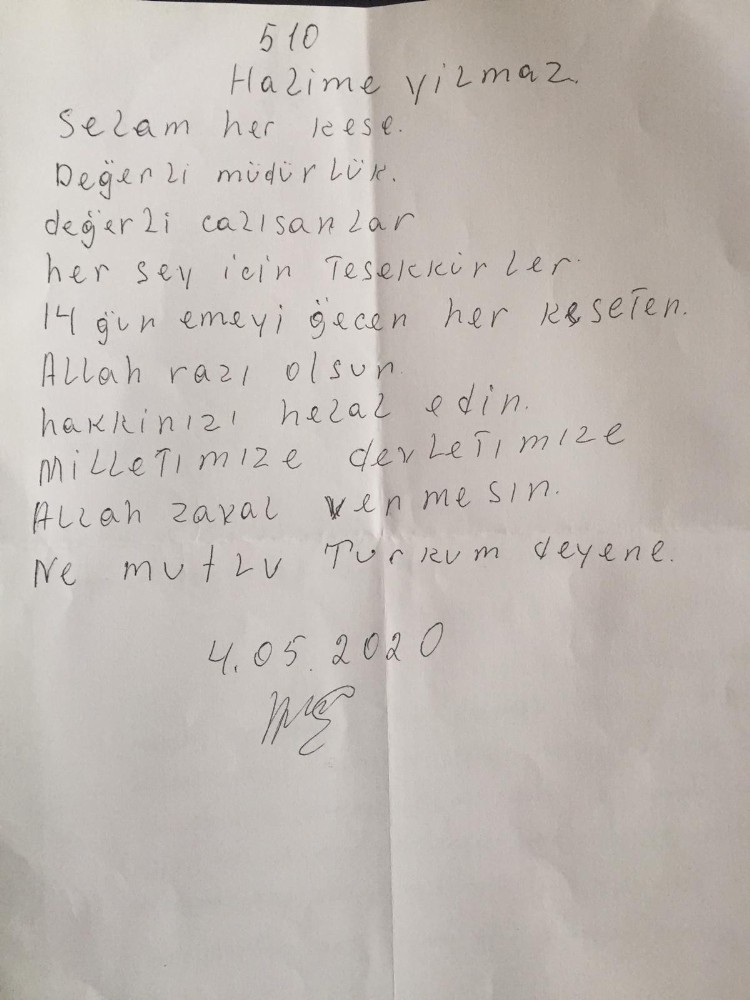 510
Halime yilmaz.
Selam her kese.
Değerli müdürlük.
değerli calısanlar
her sey icin Tesekkürler.
14 ğün emeyi ğecen her keseten.
Allah razı olsun
hakkinızı helal edin.
milletımıze devletımıze
Allah zaval vermesın.
Ne mutlu Turkum deyene.
4.05.2020